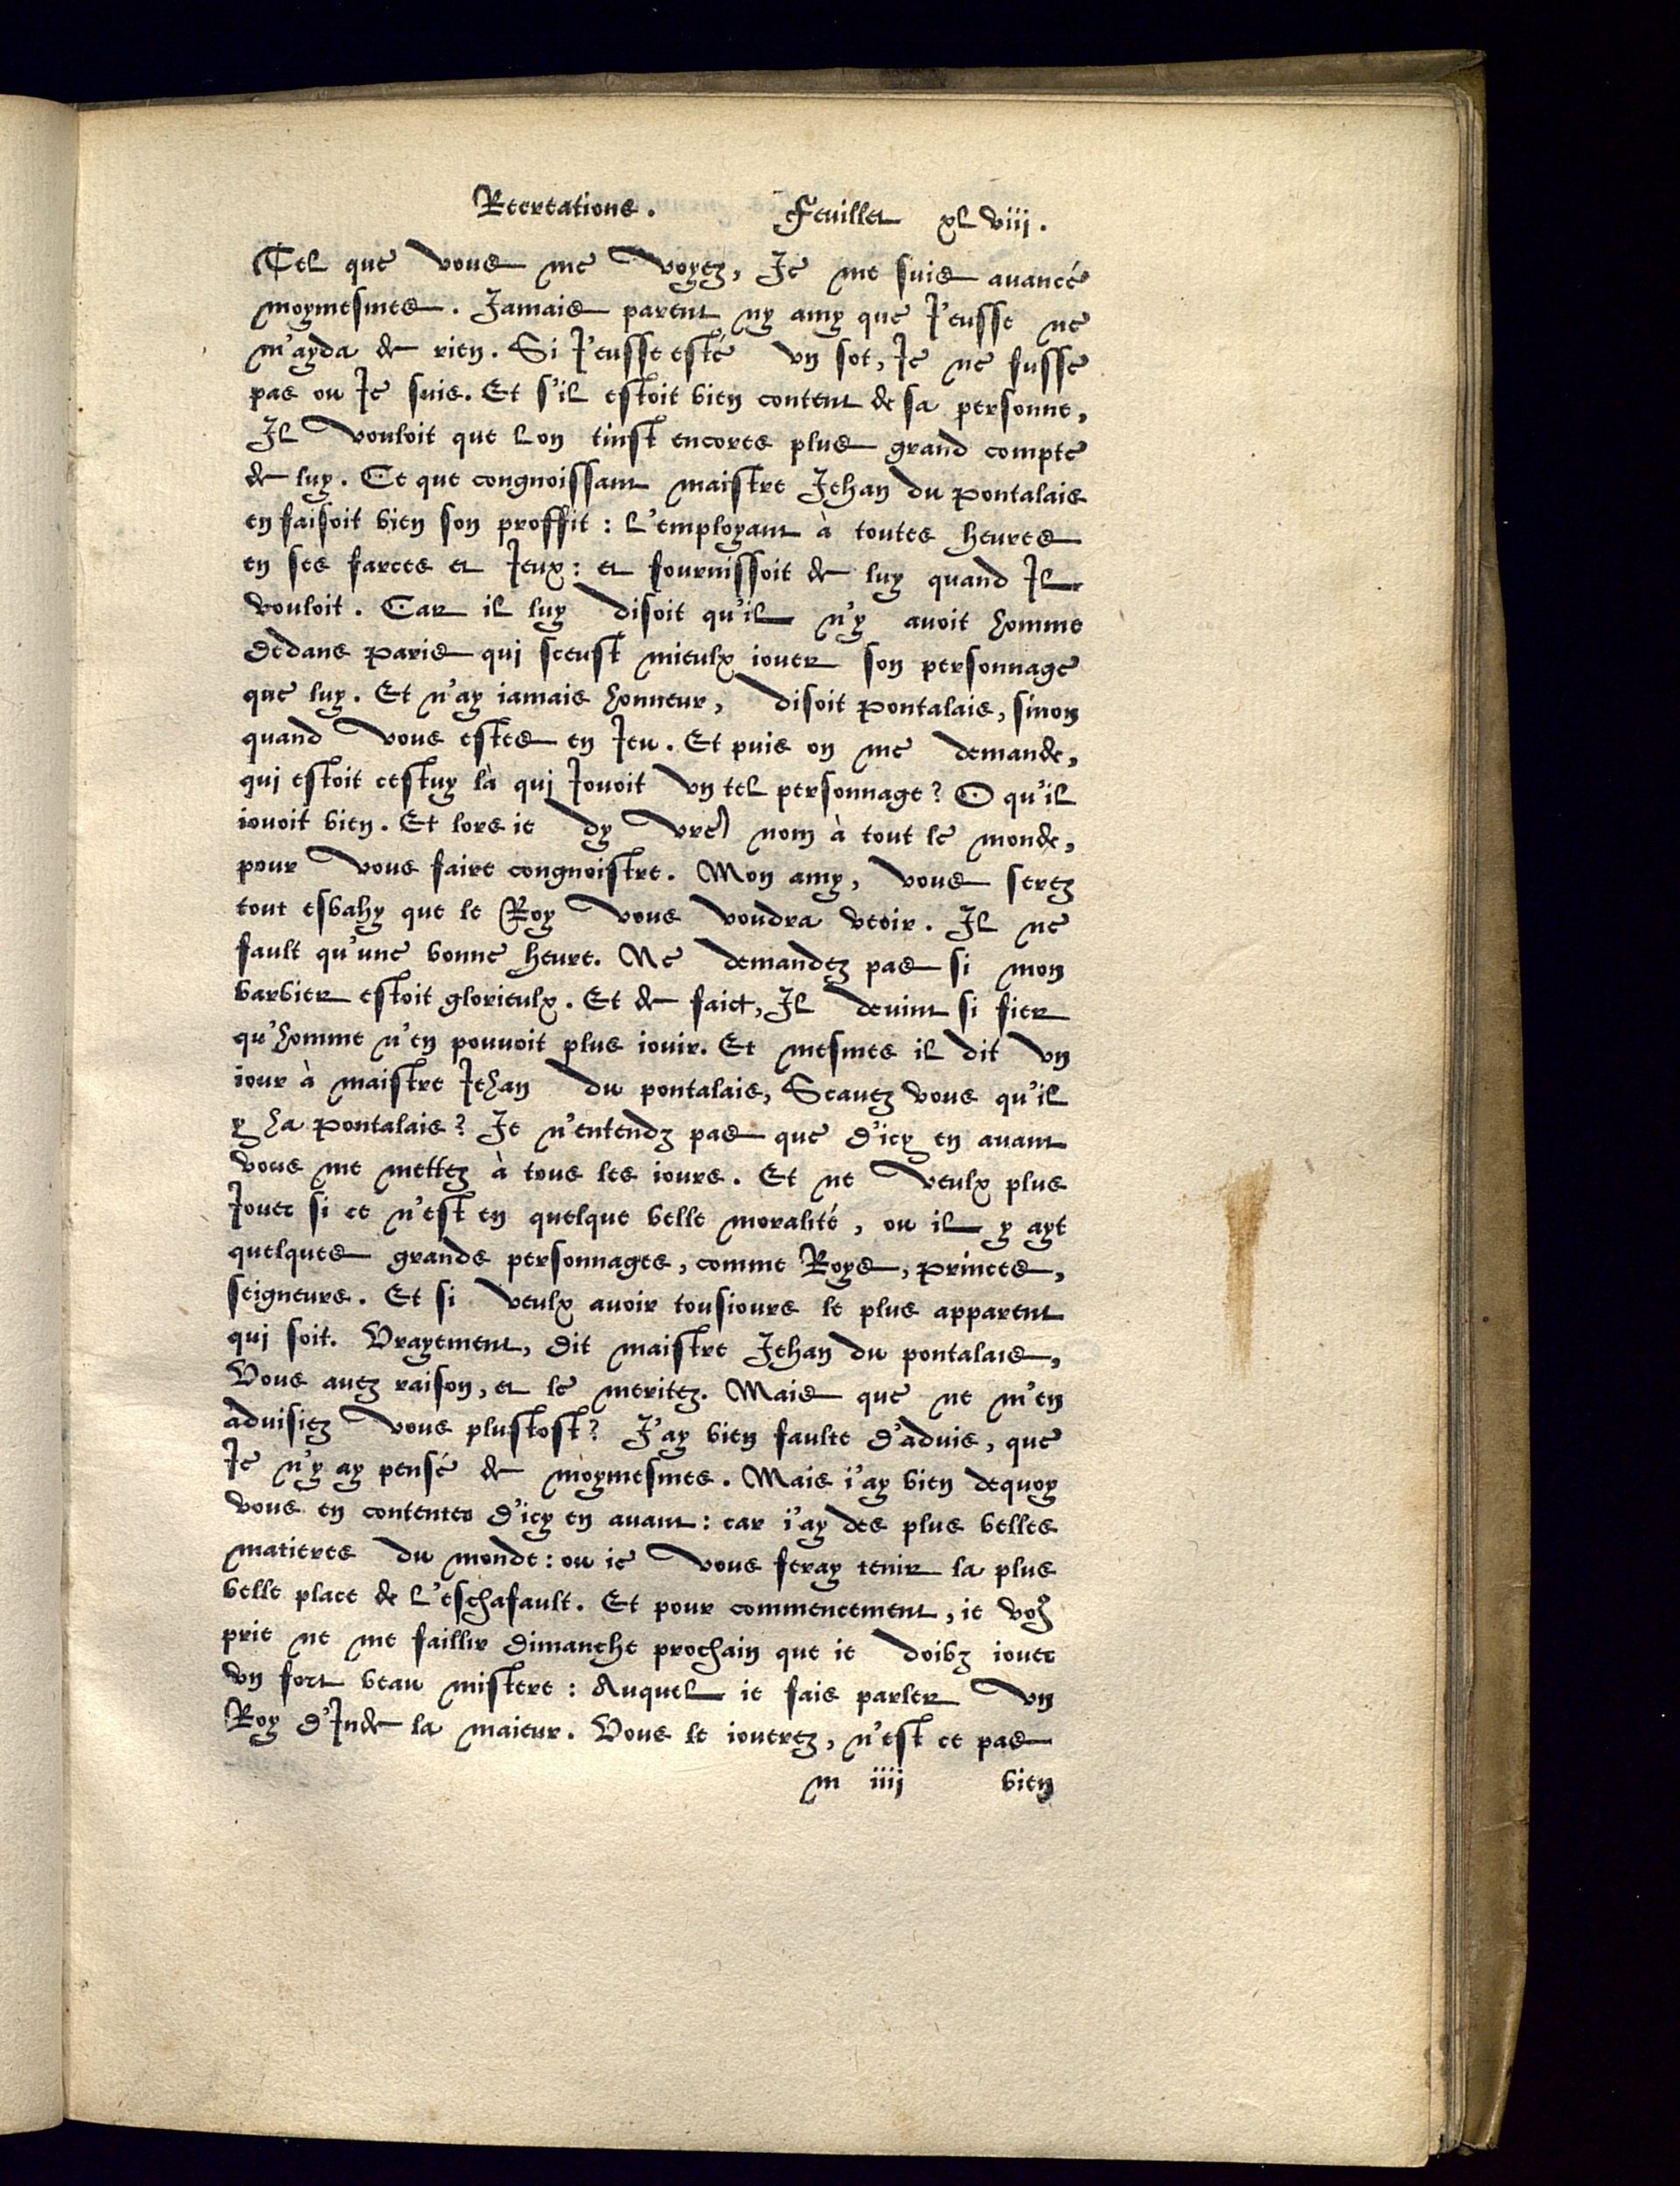 Recreations. Feuillet xlviij.
Tel que vous me voyez, Je me suis auancé
moymesmes. Jamais parent ny amy que J'eusse ne
m'ayda de rien. Si J'eusse esté vn sot, Je ne fusse
pas ou Je suis. Et s'il estoit bien content de sa personne,
Il vouloit que lon tinst encores plus grand compte
de luy. Ce que congnoissant maistre Jehan du pontalais
en faisoit bien son proffit: l'employant à toutes heures
en ses farces et Jeux: et fournissoit de luy quand Il
vouloit. Car il luy disoit qu'il n'y auoit homme
dedans paris qui sceust mieulx iouer son personnage
que luy. Et n'ay iamais honneur, disoit pontalais, sinon
quand vous estes en Jeu. Et puis on me demande,
qui estoit cestuy là qui Jouoit vn tel personnage? O qu'il
iouoit bien. Et lors ie dy vre nom à tout le monde,
pour vous faire congnoistre. Mon amy, vous serez
tout esbahy que le Roy vous voudra veoir. Il ne
fault qu'vne bonne heure. Ne demandez pas si mon
barbier estoit glorieulx. Et de faict, Il deuint si fier
qu'homme n'en pouuoit plus iouir. Et mesmes il dit vn
iour à maistre Jehan du pontalais, Scauez vous qu'il
y ha pontalais? Je n'entendz pas que d'icy en auant
vous me mettez à tous les iours. Et ne veulx plus
Jouer si ce n'est en quelque belle moralité, ou il y ayt
quelques grands personnages, comme Roys, princes,
seigneurs. Et si veulx auoir tousiours le plus apparent
qui soit. Vrayement, dit maistre Jehan du pontalais,
Vous auez raison, et le meritez. Mais que ne m'en
aduisiez vous plustost? J'ay bien faulte d'aduis, que
Je n'y ay pensé de moymesmes. Mais i'ay bien dequoy
vous en contenter d'icy en auant: car i'ay des plus belles
matieres du monde: ou ie vous feray tenir la plus
belle place de l'eschafault. Et pour commencement, ie voꝰ
prie ne me faillir dimanche prochain que ie doibz iouer
vn fort beau mistere: Auquel ie fais parler vn
Roy d'Inde la maieur. Vous le iouerez, n'est ce pas
m iiij bien